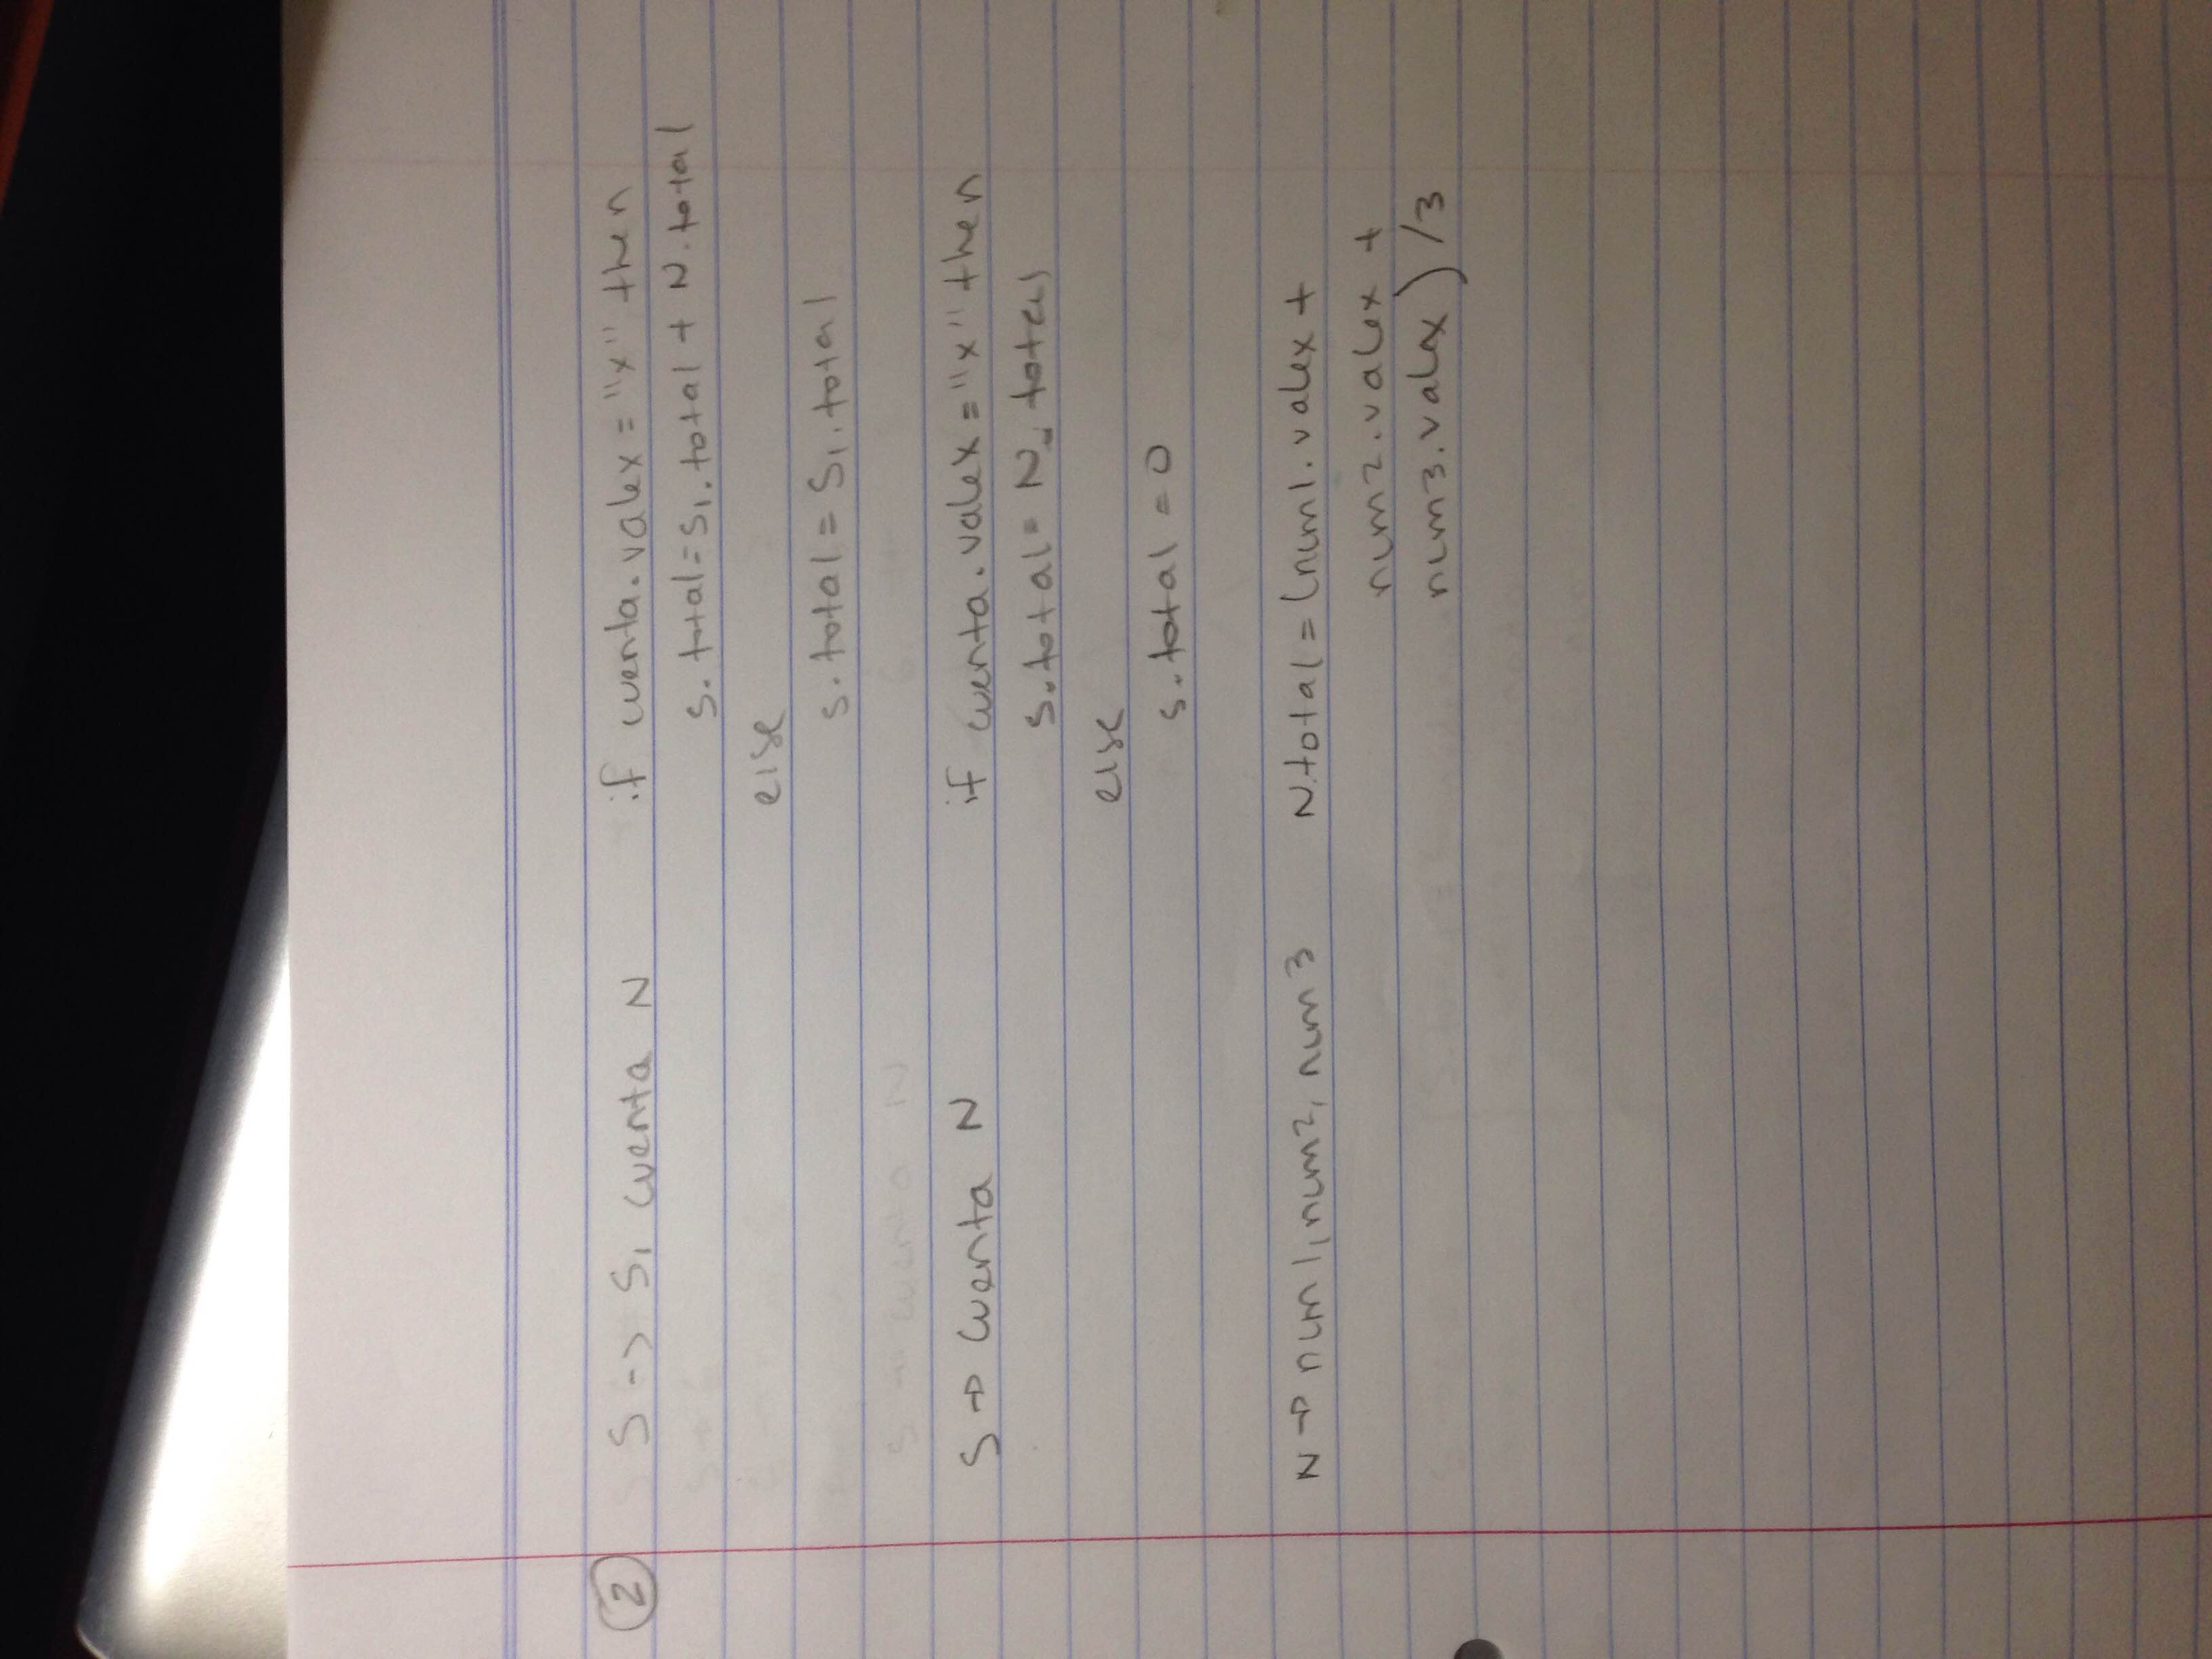 2 S -> S1 cuenta N if cuenta.valex = "x" then
S.total = S1.total + N.total
else
S.total = S1.total
S → cuenta N
S → cuenta N if cuenta.valex = "x" then
S.total = N.total
else
S.total = 0
N → num1, num2, num3 N.total = (num1.valex +
num2.valex +
num3.valex) /3